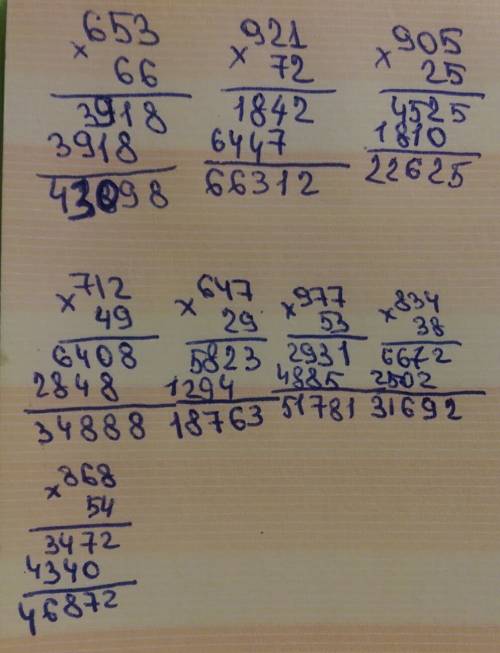 × 653
66
3918
3918
43098
× 921
72
1842
6447
66312
× 905
25
4525
1810
22625
× 712
49
6408
2848
34888
× 647
29
5823
1294
18763
× 977
53
2931
4885
51781
× 834
38
6672
2502
31692
× 868
54
3472
4340
46872